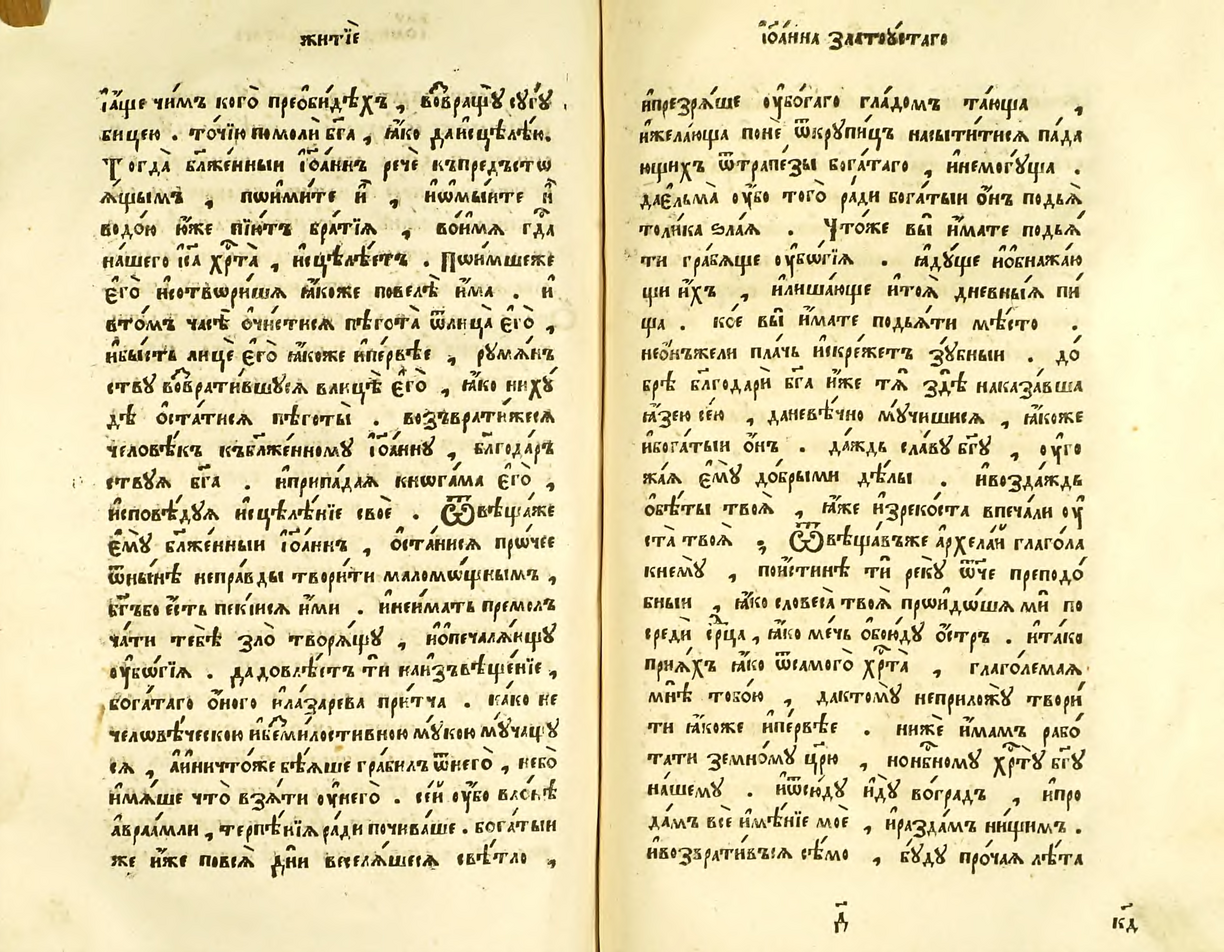 житїѐ
і҆а҆́ще чи́мъ кого̀ преѡби́дѣхъ , во́звращꙋ сꙋгꙋ́
би́цею . то́чїю помоли̑ бг҃а , ꙗ҆́ко даисцѣлѣ́ю.
Тогда̀ бл҃же́нныи і҆ѡ҃а́ннъ речѐ къпредъстѡ
ѧ́щымъ , пѡими́те и҆̀ , и҆ѡмы́ите и҆̀
водо́ю и҆́же пїю́тъ бра́тїѧ , вои́мѧ гд҃а
на́шего і҆с҃а хрⷭ҇та̀ , исцѣлѣ́етъ . Пѡи́мшеже
є҆го̀ исотвѡри́шѧ ꙗ҆́коже повелѣ̀ и҆́ма . и҆
вто́мъ часѣ̀ ѡ҆чи́стисѧ пѣгота̀ ѿлица̀ є҆го̀ ,
ибы́сть лицѐ є҆го̀ ꙗ҆́коже и҆пе́рвѣе , рꙋмѧ́нъ
ствꙋ возврати́вшꙋсѧ влицѣ̀ є҆го̀ , ꙗ҆́ко нихꙋ̀
дѣ ѡ҆ста́тисѧ пѣготы̀ . возъврати́жесѧ
человѣ́къ къбл҃же́нномꙋ і҆ѡ҃а́ннꙋ , бл҃года́рь
ствꙋѧ бг҃а . иприпа́даѧ кнѡга́ма є҆го̀ ,
исповѣ́дꙋѧ исцѣле́нїе своѐ . Ѿвѣща́же
є҆мꙋ̀ бл҃же́нныи і҆ѡ҃а́ннъ , ѡ҆ста́нисѧ прѡ́чее
ѿны́нѣ непра́вды твори́ти маломѡ́щнымъ ,
бг҃ъбо є҆́сть пекі́исѧ и҆́ми . инеи́мать премол
ча́ти тебѣ̀ зло̀ творѧ́щꙋ , иѡпеча́лѧющꙋ
ᲂу҆бѡ́гїѧ . дадовлѣ́етъ ти̑ наизъвѣще́нїе ,
бога́таго ѻ҆́ного илазарева при́тча . ка́ко не
челѡвѣ́ческою ибезми́лостивною мꙋ́кою мꙋ́чащꙋ
сѧ , аи҆ничто́же бѣ́ѧше гра́билъ ѿнего̀ , небо̀
и҆мѧ́ше что̀ взѧ́ти ᲂу҆него̀ . се́и ᲂу҆́бо вло́нѣ
а҆враа́мли , терпѣ́нїѧ ра́ди почива́ше . бога́тыи
же и҆́же повсѧ̑ дн҃и веселѧ́шесѧ свѣ́тло ,
і҆ѡ҃а́нна златоꙋ́стаго
ипрезрѧ́ше ᲂу҆бо́гаго гла́домъ та́юща ,
ижела́юща понѐ ѿкрꙋпи́цъ насы́титисѧ па́да
ющихъ ѿтрапе́зы бога́таго , инемогꙋ́ща .
даєльма̀ ᲂу҆́бо того̀ ра́ди бога́тыи ѻ҆́нъ подъѧ̀
толика ѕла́ѧ . Что́же вы̀ и҆́мате подъѧ́
ти гра́бѧще ᲂу҆бѡ́гїѧ . ꙗ҆дꙋ́ще иѡбнажа́ю
щи и҆́хъ , илиша́юще ито́ѧ дневны́ѧ пи́
ща . ко́е вы̀ и҆́мате подъѧ́ти мѣ́сто .
неѻ҆́нъжели пла́чь искре́жетъ зꙋ́бныи . до́
брѣ бл҃годарѝ бг҃а и҆́же тѧ̀ здѣ̀ наказа́вша
ꙗ҆́зею се́ю , даневѣ́чно мꙋ́чишисѧ , ꙗ҆́коже
ибога́тыи ѻ҆́нъ . да́ждь сла́вꙋ бг҃ꙋ , ᲂу҆го
жа́ѧ є҆мꙋ̀ до́брыми дѣ́лы . ивозда́ждь
ѻ҆бѣ́ты твоѧ̑ , ꙗ҆́же изреко́ста впеча́ли ᲂу҆
ста̀ твоѧ̑ , Ѿвѣща́въже а҆рхела́и глаго́ла
кнемꙋ̀ , пои҆́стинѣ тѝ рекꙋ̀ ѻ҆́ч҃е преподо́
бныи , ꙗ҆́ко словеса̀ твоѧ̑ прѡидо́шѧ мѝ по
средѝ се́рца , ꙗ҆́ко ме́чь ѻ҆бою́дꙋ ѻ҆́стръ . ита́ко
прїѧ́хъ ꙗ҆́ко ѿсамого̀ хрⷭ҇та̀ , глаго́лемаѧ
мнѣ̀ тобо́ю , дактомꙋ̀ неприложꙋ̀ твори́
ти ꙗ҆́коже и҆пе́рвѣе . нижѐ и҆́мамъ рабо́
тати земно́мꙋ цр҃ю̀ , нонбⷭ҇номꙋ хрⷭ҇тꙋ̀ бг҃ꙋ
на́шемꙋ . иѿсю́дꙋ и҆дꙋ̀ во́градъ , ипро
да́мъ всѐ и҆мѣ́нїе моѐ , иразда́мъ ни́щимъ .
ивозврати́въсѧ сѣ́мо , бꙋ́дꙋ про́чаѧ лѣ́та
д҃
кд҃